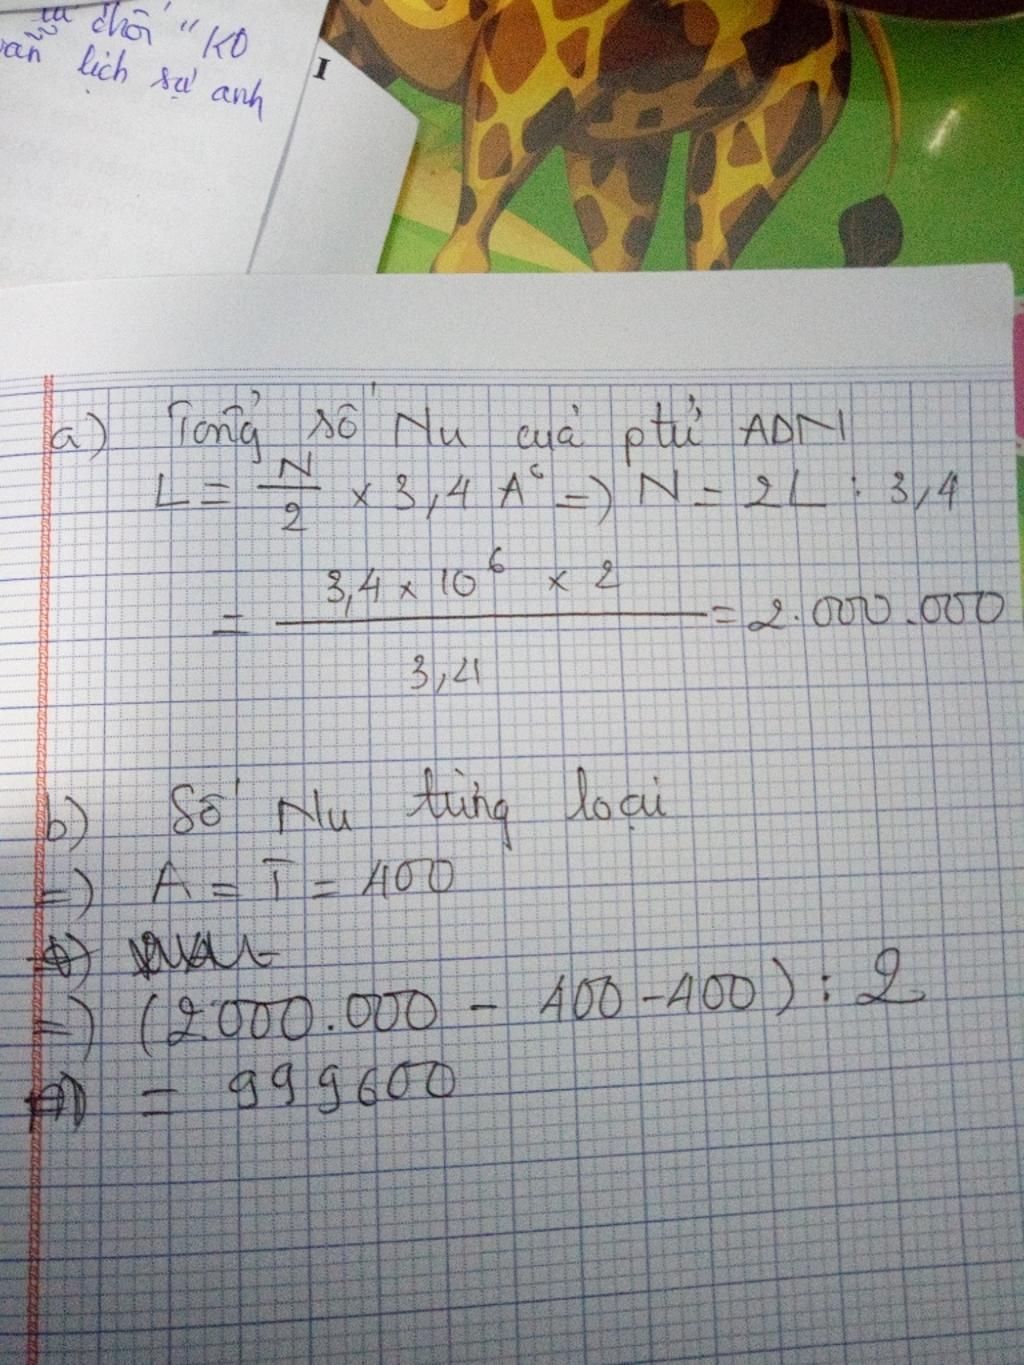 chối "KO
lịch sự anh
I
a) Tổng số Nu của ptử ADN
L = N/2 × 3,4 A° => N = 2L : 3,4
= 3,4 × 10⁶ × 2 / 3,4 = 2.000.000
b) Số Nu từng loại
=) A = T = 400
=) (2.000.000 - 400 - 400) : 2
= 999600